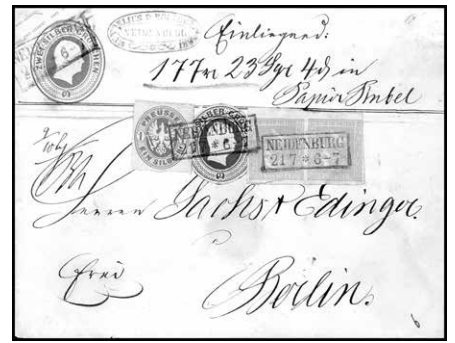 ZWEI SILBER GROSCHEN
NEIDENBURG
Einliegend:
177 rr 23 Sgr 4 d in
Papier Rubel
PREUSSEN
EIN SILB
SILBER GR
NEIDENBURG
21 7 * 6-7
NEIDENBURG
21 7 * 6-7
Herren Sachs & Edinger
frei
Berlin.